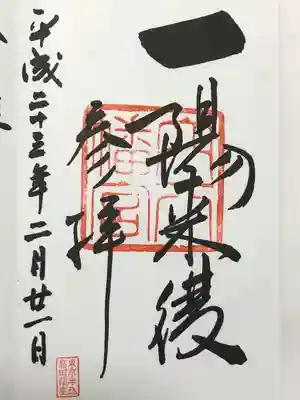 一陽来復
参拝
平成二十三年二月廿一日